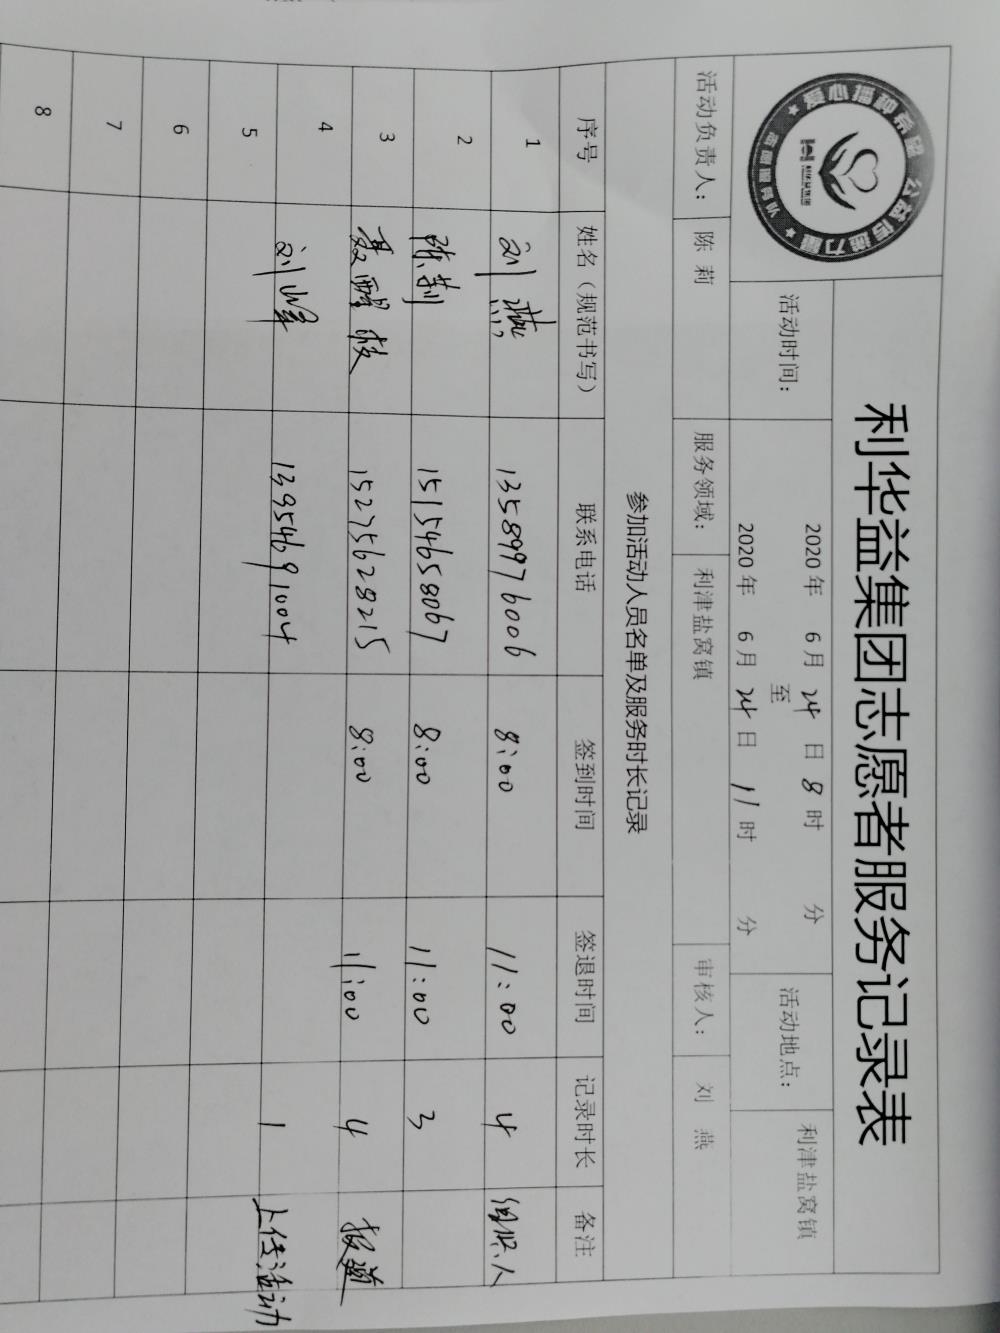 爱心播种希望 公益传递力量
利华益集团
志愿服务队
利华益集团志愿者服务记录表
活动时间: 2020年 6月 24日 8时 分 至 2020年 6月 24日 11时 分 活动地点: 利津盐窝镇
活动负责人: 陈 莉 服务领域: 利津盐窝镇 审核人: 刘 燕
参加活动人员名单及服务时长记录
序号 姓名（规范书写） 联系电话 签到时间 签退时间 记录时长 备注
1 刘燕 13589976006 8:00 11:00 4 组织人
2 陈莉 15154658067 8:00 11:00 3
3 聂醒枝 15275628215 8:00 11:00 4 报道
4 刘峰 13954691004 1 上传活动
5
6
7
8